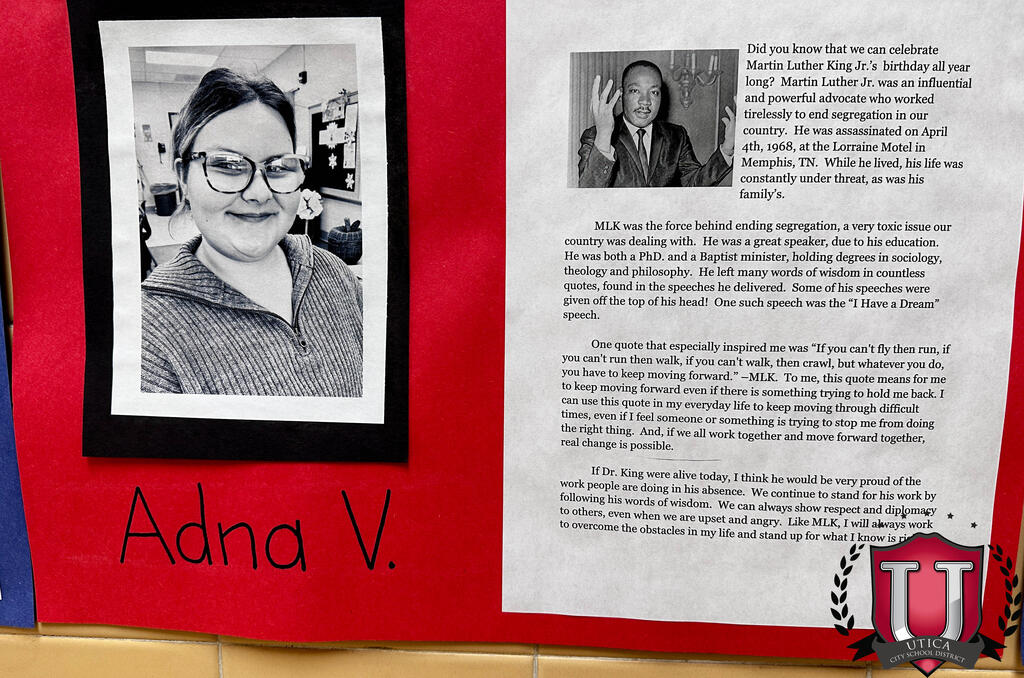 Did you know that we can celebrate
Martin Luther King Jr.'s birthday all year
long? Martin Luther Jr. was an influential
and powerful advocate who worked
tirelessly to end segregation in our
country. He was assassinated on April
4th, 1968, at the Lorraine Motel in
Memphis, TN. While he lived, his life was
constantly under threat, as was his
family's.
MLK was the force behind ending segregation, a very toxic issue our
country was dealing with. He was a great speaker, due to his education.
He was both a PhD. and a Baptist minister, holding degrees in sociology,
theology and philosophy. He left many words of wisdom in countless
quotes, found in the speeches he delivered. Some of his speeches were
given off the top of his head! One such speech was the "I Have a Dream"
speech.
One quote that especially inspired me was "If you can't fly then run, if
you can't run then walk, if you can't walk, then crawl, but whatever you do,
you have to keep moving forward." –MLK. To me, this quote means for me
to keep moving forward even if there is something trying to hold me back. I
can use this quote in my everyday life to keep moving through difficult
times, even if I feel someone or something is trying to stop me from doing
the right thing. And, if we all work together and move forward together,
real change is possible.
If Dr. King were alive today, I think he would be very proud of the
work people are doing in his absence. We continue to stand for his work by
following his words of wisdom. We can always show respect and diplomacy
to others, even when we are upset and angry. Like MLK, I will always work
to overcome the obstacles in my life and stand up for what I know is
Adna V.
U
UTICA
CITY SCHOOL DISTRICT